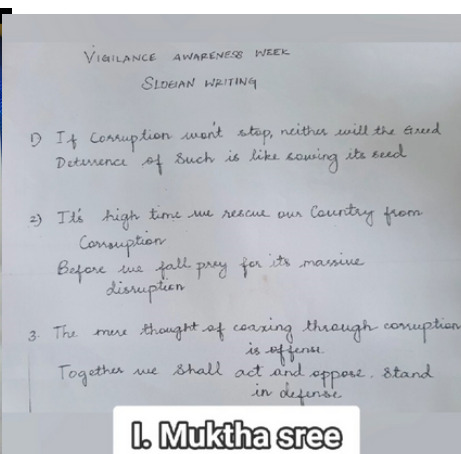 VIGILANCE AWARENESS WEEK
SLOGAN WRITING
1) If Corruption won't stop, neither will the Greed
Deterrence of Such is like sowing its seed
2) It's high time we rescue our Country from
Corruption
Before we fall prey for its massive
disruption
3. The mere thought of coaxing through corruption
is offense
Together we Shall act and oppose. Stand
in defense
I. Muktha sree